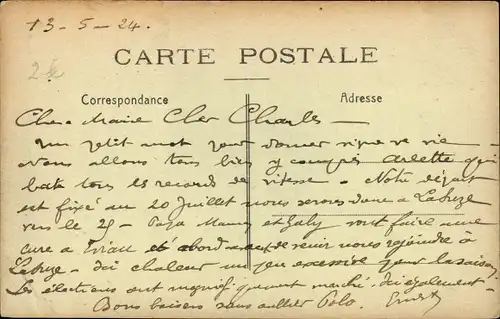 13-5-24.
2
CARTE POSTALE
Correspondance
Adresse
Chere Marie Cher Charles —
Un petit mot pour donner signe de vie —
nous allons tous bien y compris Arlette qui
bat tous les records de vitesse — Notre départ
est fixé au 20 Juillet nous serons donc a
vers le 25 — Papa Maman et Gaby vont faire une
cure a Evian et d'abord avant de venir nous rejoindre à
— Ici chaleur un peu excessive pour la saison
Les élections ont magnifiquement marché. Ici également —
Bons baisers sans oublier Polo. Ernest